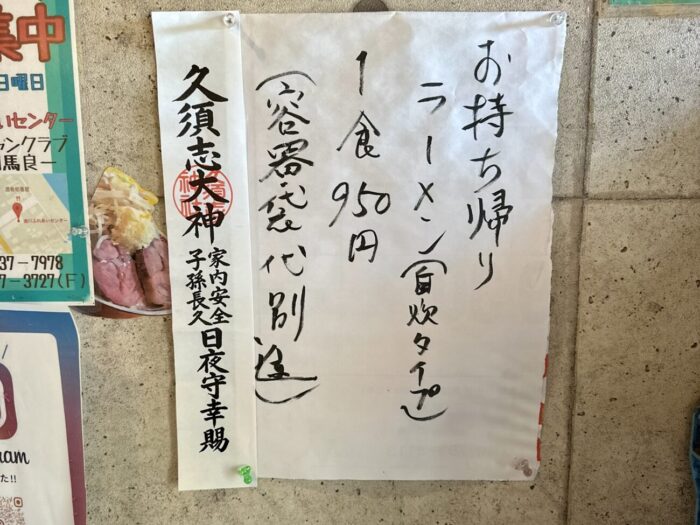 お持ち帰り
ラーメン(自炊タイプ)
1食950円
(容器袋代別途)
久須志大神
家内安全
子孫長久
日夜守幸賜
集中
日曜日
いセンター
ャンクラブ
馬良一
37-7978
7-3727(F)
am
た!!